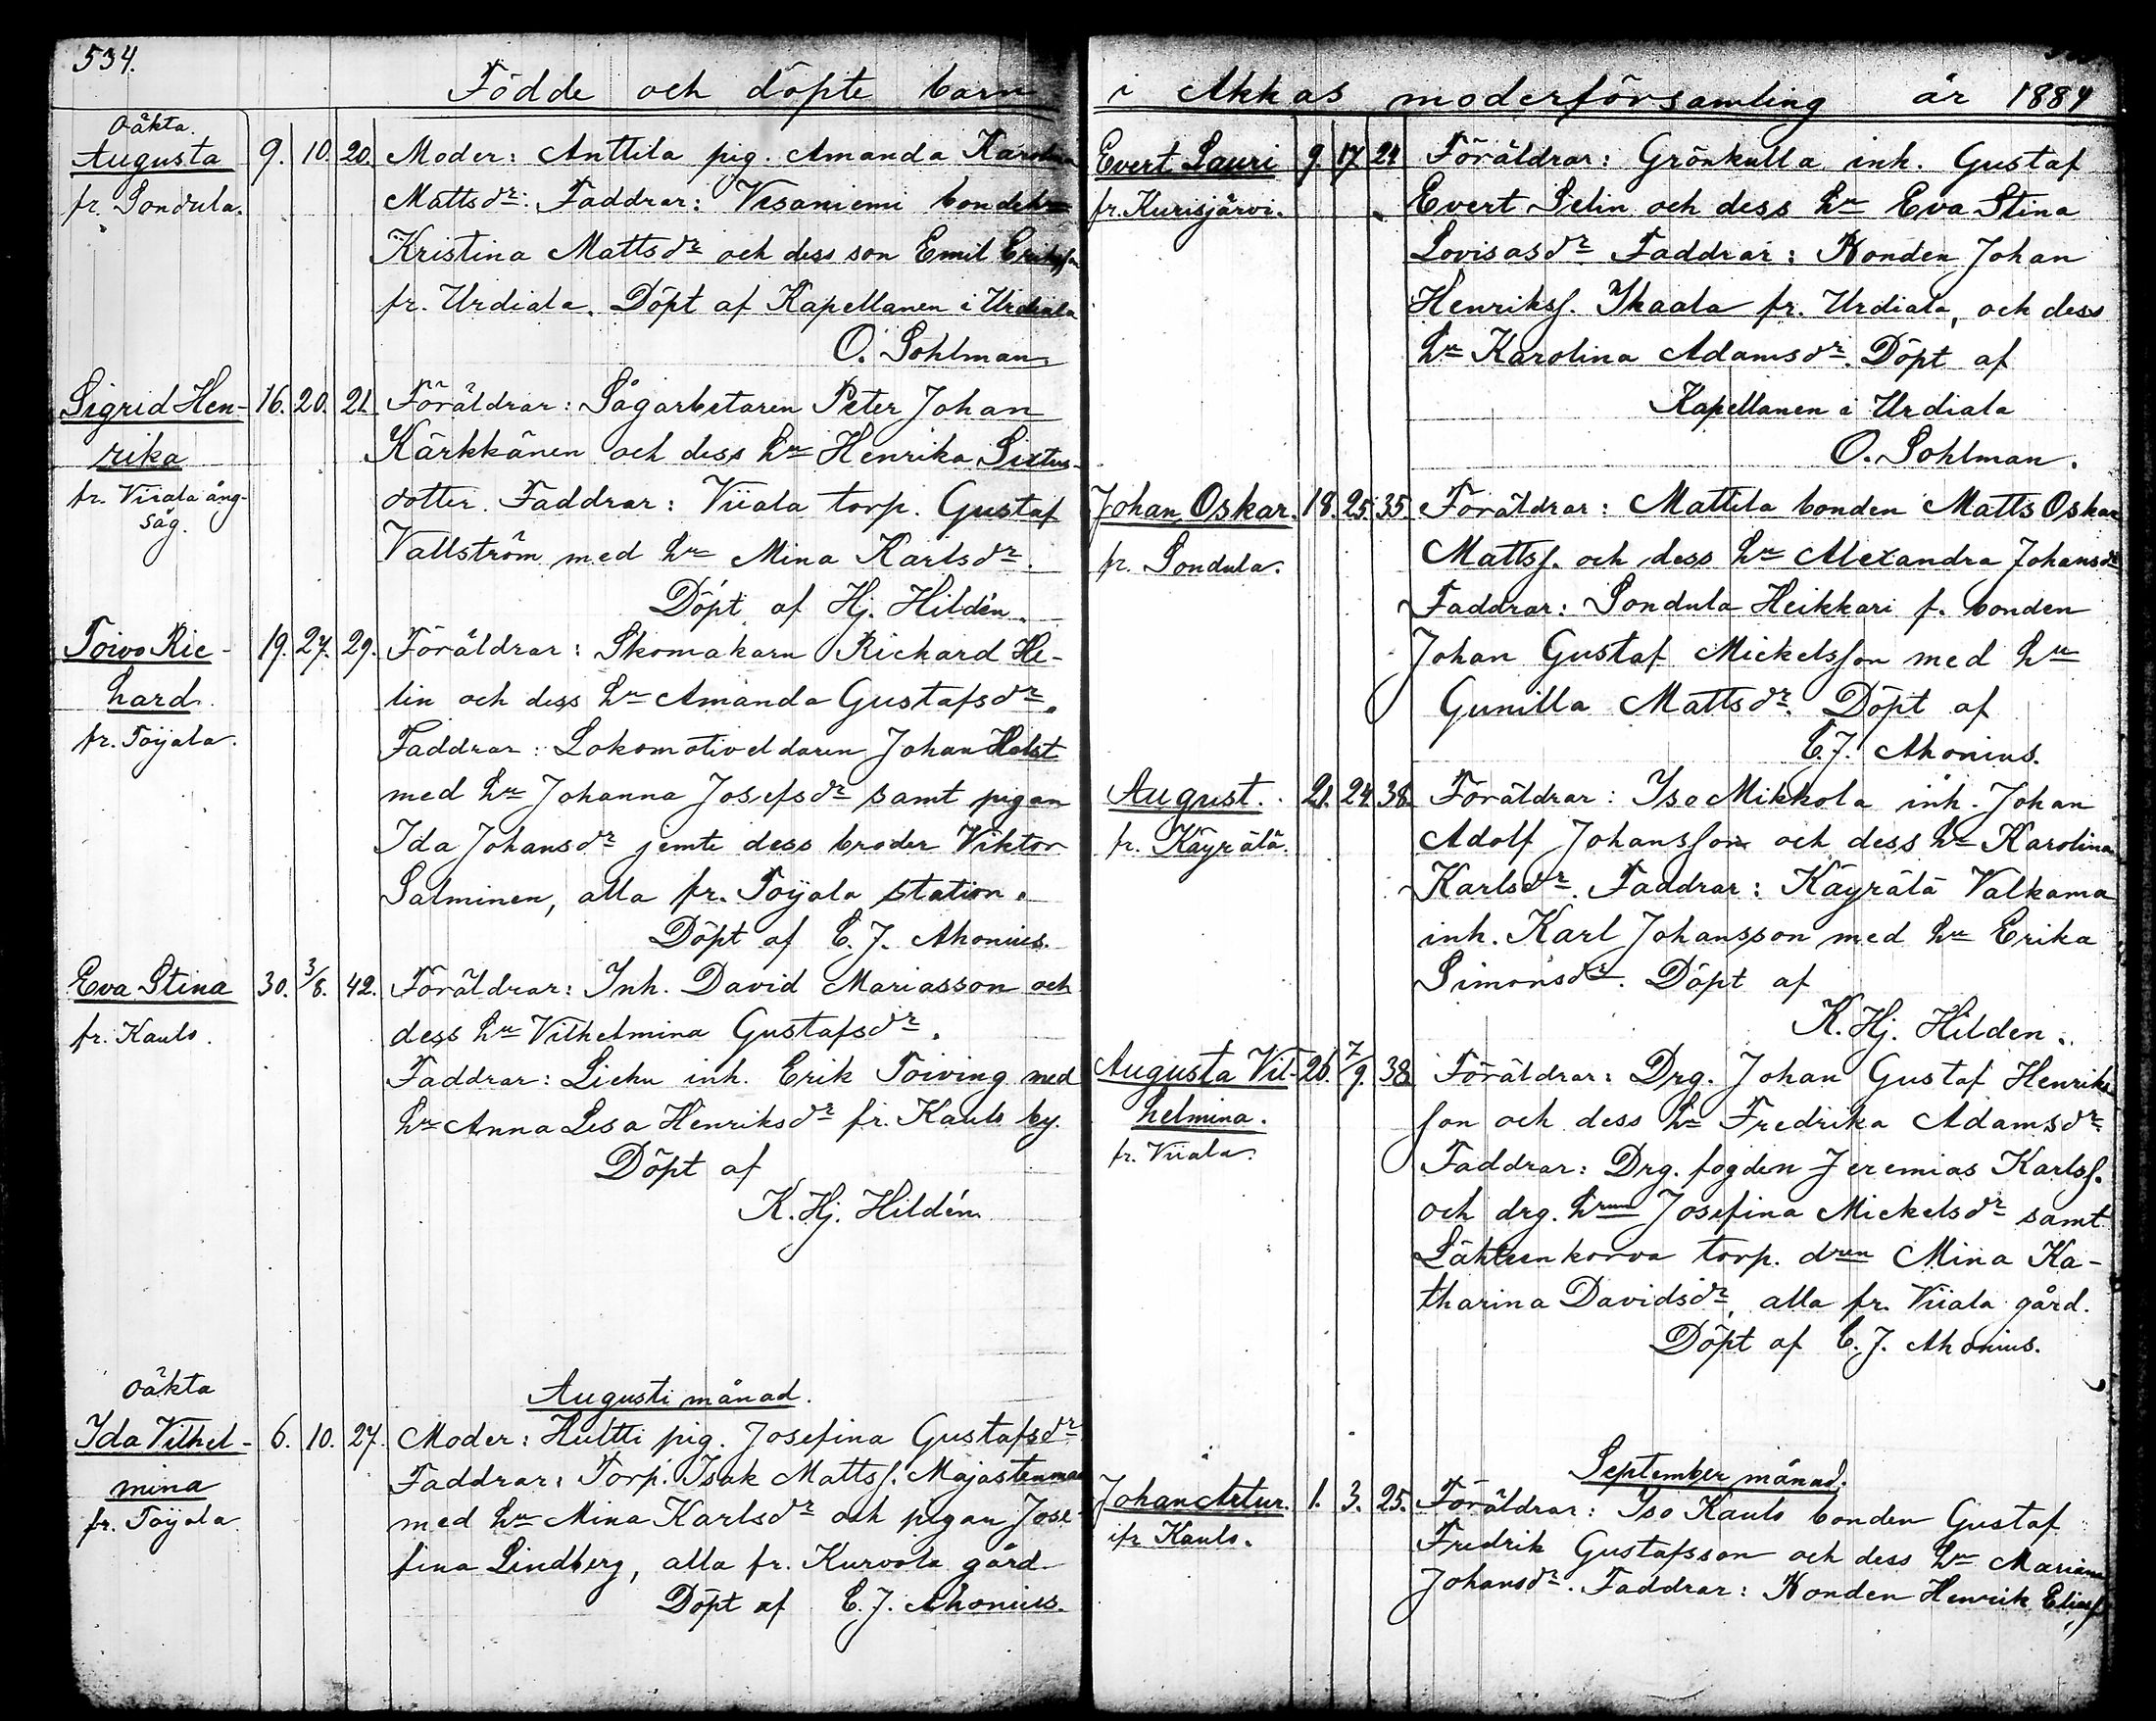 534.
Födde och döpte barn
Oäkta.
Augusta 9. 10. 20. Moder: Anttila pig. Amanda Karolina
fr. Sondula. Mattsdr: Faddrar: Vesaniemi bondehr
Kristina Mattsdr och dess son Emil Eriksson
fr. Urdiala. Döpt af Kapellanen i Urdiala
O. Sohlman.
Sigrid Hen- 16. 20. 21. Föräldrar: Sågarbetaren Peter Johan
rika Kärkkänen och dess hu Henrika Sixtus-
fr. Viiala ång- dotter. Faddrar: Viiala torp. Gustaf
såg. Vallström med hu Mina Karlsdr.
Döpt af Hj. Hildén.
Toivo Ric- 19. 27. 29. Föräldrar: Skomakarn Richard He-
hard. lin och dess hu Amanda Gustafsdr.
fr. Toijala. Faddrar: Lokomotiveldaren Johan Holst
med hu Johanna Josefsdr samt pigan
Ida Johansdr jemte dess broder Viktor
Salminen, alla fr. Toijala station.
Döpt af C. J. Ahonius.
Eva Stina 30. 3/8. 42. Föräldrar: Inh. David Mariasson och
fr. Kaulo. dess hu Vilhelmina Gustafsdr.
Faddrar: Liehu inh. Erik Toiving med
hu Anna Lisa Henriksdr fr. Kaulo by.
Döpt af
K. Hj. Hildén
Augusti månad.
oäkta
Ida Vilhel- 6. 10. 27. Moder: Hultti pig. Josefina Gustafsdr
mina Faddrar: Torp. Isak Mattss. Majastenmaa
fr. Toijala. med hu Mina Karlsdr och pigan Jose-
fina Lindberg, alla fr. Kurvola gård
Döpt af C. J. Ahonius.
i Akkas moderförsamling år 1884
Evert Lauri 9. 17. 24. Föräldrar: Grönkulla inh. Gustaf
fr. Kurisjärvi. Evert Selin och dess hu Eva Stina
Lovisasdr Faddrar: Bonden Johan
Henrikss. Ikaala fr. Urdiala, och dess
hu Karolina Adamsdr. Döpt af
Kapellanen i Urdiala
O. Sohlman.
Johan Oskar. 18. 25. 35. Föräldrar: Mattila bonden Matts Oskar
fr. Sondula. Mattss. och dess hu Alexandra Johansdr
Faddrar: Sondula Heikkari f. bonden
Johan Gustaf Mickelsson med hu
Gunilla Mattsdr. Döpt af
C. J. Ahonius.
August. 21. 24. 38. Föräldrar: Iso Mikkola inh. Johan
fr. Käyrälä. Adolf Johansson och dess hu Karolina
Karlsdr. Faddrar: Käyrälä Valkama
inh. Karl Johansson med hu Erika
Simonsdr. Döpt af
K. Hj. Hilden.
Augusta Vil- 26. 7/9. 38. Föräldrar: Drg. Johan Gustaf Henriks
helmina. son och dess hu Fredrika Adamsdr
fr. Viiala. Faddrar: Drg. fogden Jeremias Karlss.
och drg. hrun Josefina Mickelsdr samt
Lähteenkorva torp. drun Mina Ka-
tharina Davidsdr, alla fr. Viiala gård.
Döpt af C. J. Ahonius.
September månad.
Johan Artur. 1. 3. 25. Föräldrar: Iso Kaulo bonden Gustaf
fr Kaulo. Fredrik Gustafsson och dess hu Mariana
Johansdr. Faddrar: Bonden Henrik Eliass